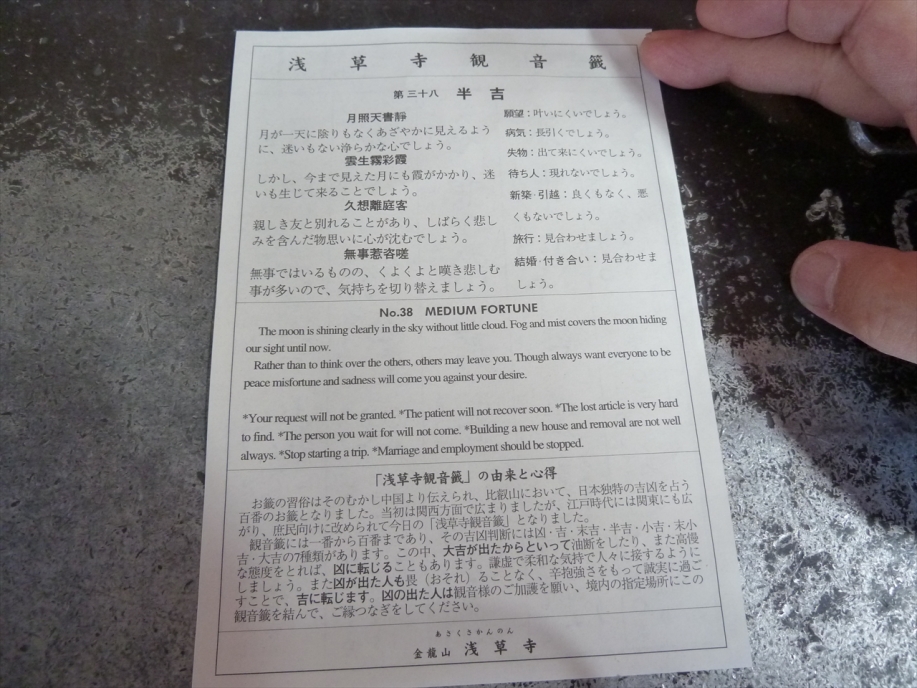 浅草寺観音籤
第三十八 半吉
月照天書靜
月が一天に陰りもなくあざやかに見えるよう
に、迷いもない浄らかな心でしょう。
雲生霧彩霞
しかし、今まで見えた月にも霞がかかり、迷
いも生じて来ることでしょう。
久想離庭客
親しき友と別れることがあり、しばらく悲し
みを含んだ物思いに心が沈むでしょう。
無事惹咨嗟
無事ではいるものの、くよくよと嘆き悲しむ
事が多いので、気持ちを切り替えましょう。
願望：叶いにくいでしょう。
病気：長引くでしょう。
失物：出て来にくいでしょう。
待ち人：現れないでしょう。
新築・引越：良くもなく、悪
くもないでしょう。
旅行：見合わせましょう。
結婚・付き合い：見合わせま
しょう。
No.38 MEDIUM FORTUNE
The moon is shining clearly in the sky without little cloud. Fog and mist covers the moon hiding
our sight until now.
Rather than to think over the others, others may leave you. Though always want everyone to be
peace misfortune and sadness will come you against your desire.
*Your request will not be granted. *The patient will not recover soon. *The lost article is very hard
to find. *The person you wait for will not come. *Building a new house and removal are not well
always. *Stop starting a trip. *Marriage and employment should be stopped.
「浅草寺観音籤」の由来と心得
お籤の習俗はそのむかし中国より伝えられ、比叡山において、日本独特の吉凶を占う
百番のお籤となりました。当初は関西方面で広まりましたが、江戸時代には関東にも広
がり、庶民向けに改められて今日の「浅草寺観音籤」となりました。
観音籤には一番から百番まであり、その吉凶判断には凶・吉・末吉・半吉・小吉・末小
吉・大吉の7種類があります。この中、大吉が出たからといって油断をしたり、また高慢
な態度をとれば、凶に転じることもあります。謙虚で柔和な気持で人々に接するように
しましょう。また凶が出た人も畏（おそれ）ることなく、辛抱強さをもって誠実に過ご
すことで、吉に転じます。凶の出た人は観音様のご加護を願い、境内の指定場所にこの
観音籤を結んで、ご縁つなぎをしてください。
あさくさかんのん
金龍山 浅草寺